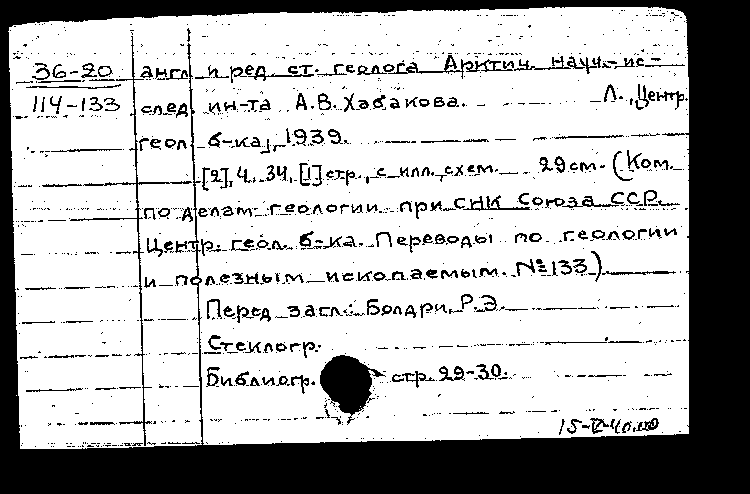 36-20 англ и ред. ст. геолога Арктич. науч.-ис-
114-133 след. ин-та А.В. Хабакова. Л., Центр.
геол. б-ка, 1939.
[2], 4, 34, [1] стр., с илл., схем. 29 см. (Ком.
по делам геологии при СНК Союза ССР.
Центр. геол. б-ка. Переводы по геологии
и полезным ископаемым. №133)
Перед загл.: Болдри, Р.Э.
Стеклогр.
Библиогр. стр. 29-30.